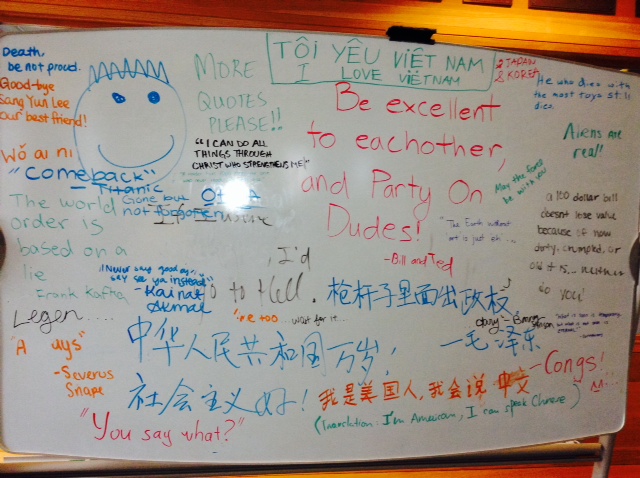 Death,
be not proud.
Goodbye
Sang Yun Lee
our best friend!
Wǒ ai ni
MORE
QUOTES
PLEASE!!
TÔI YÊU VIỆT NAM
I LOVE VIETNAM
& JAPAN
& KOREA
He who dies with
the most toys still
dies.
Aliens are
real!
"I CAN DO ALL
THINGS THROUGH
CHRIST WHO STRENGTHENS ME"
Be excellent
to eachother,
and Party On
Dudes!
-Bill and Ted
May the force
be with you
"Comeback"
-Titanic
Gone but
not forgotten
The world
order is
based on a
lie
Frank Kafka
"The Earth without
art is just eh...
a 100 dollar bill
doesnt lose value
because of how
dirty, crumpled, or
old it is... neither
do you!
"Never say goodbye,
say see ya instead"
-Kainat
Akmal
I'd
go to Hell.
枪杆子里面出政权
一毛泽东
Legen....
me too... wait for it...
中华人民共和国万岁!
"A ways"
-Severus
Snape
社会主义好!
我是美国人,我会说中文
(Translation: I'm American, I can speak Chinese)
-Congs!
"You say what?"